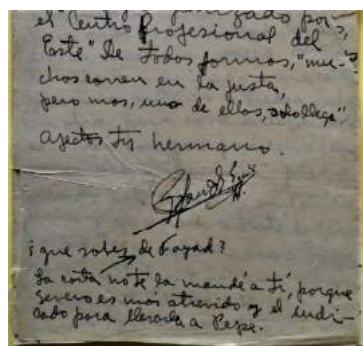 el Centro Profesional del
Este" De todos formas, "mu-
chos corren en la justa,
pero mas, uno de ellos, solo llega".
afectos tu hermano.
¿que sabes de Fayad?
La carta no te la mandé a tí, porque
Severo es más atrevido y el indi-
cado para llevarla a Pepe.